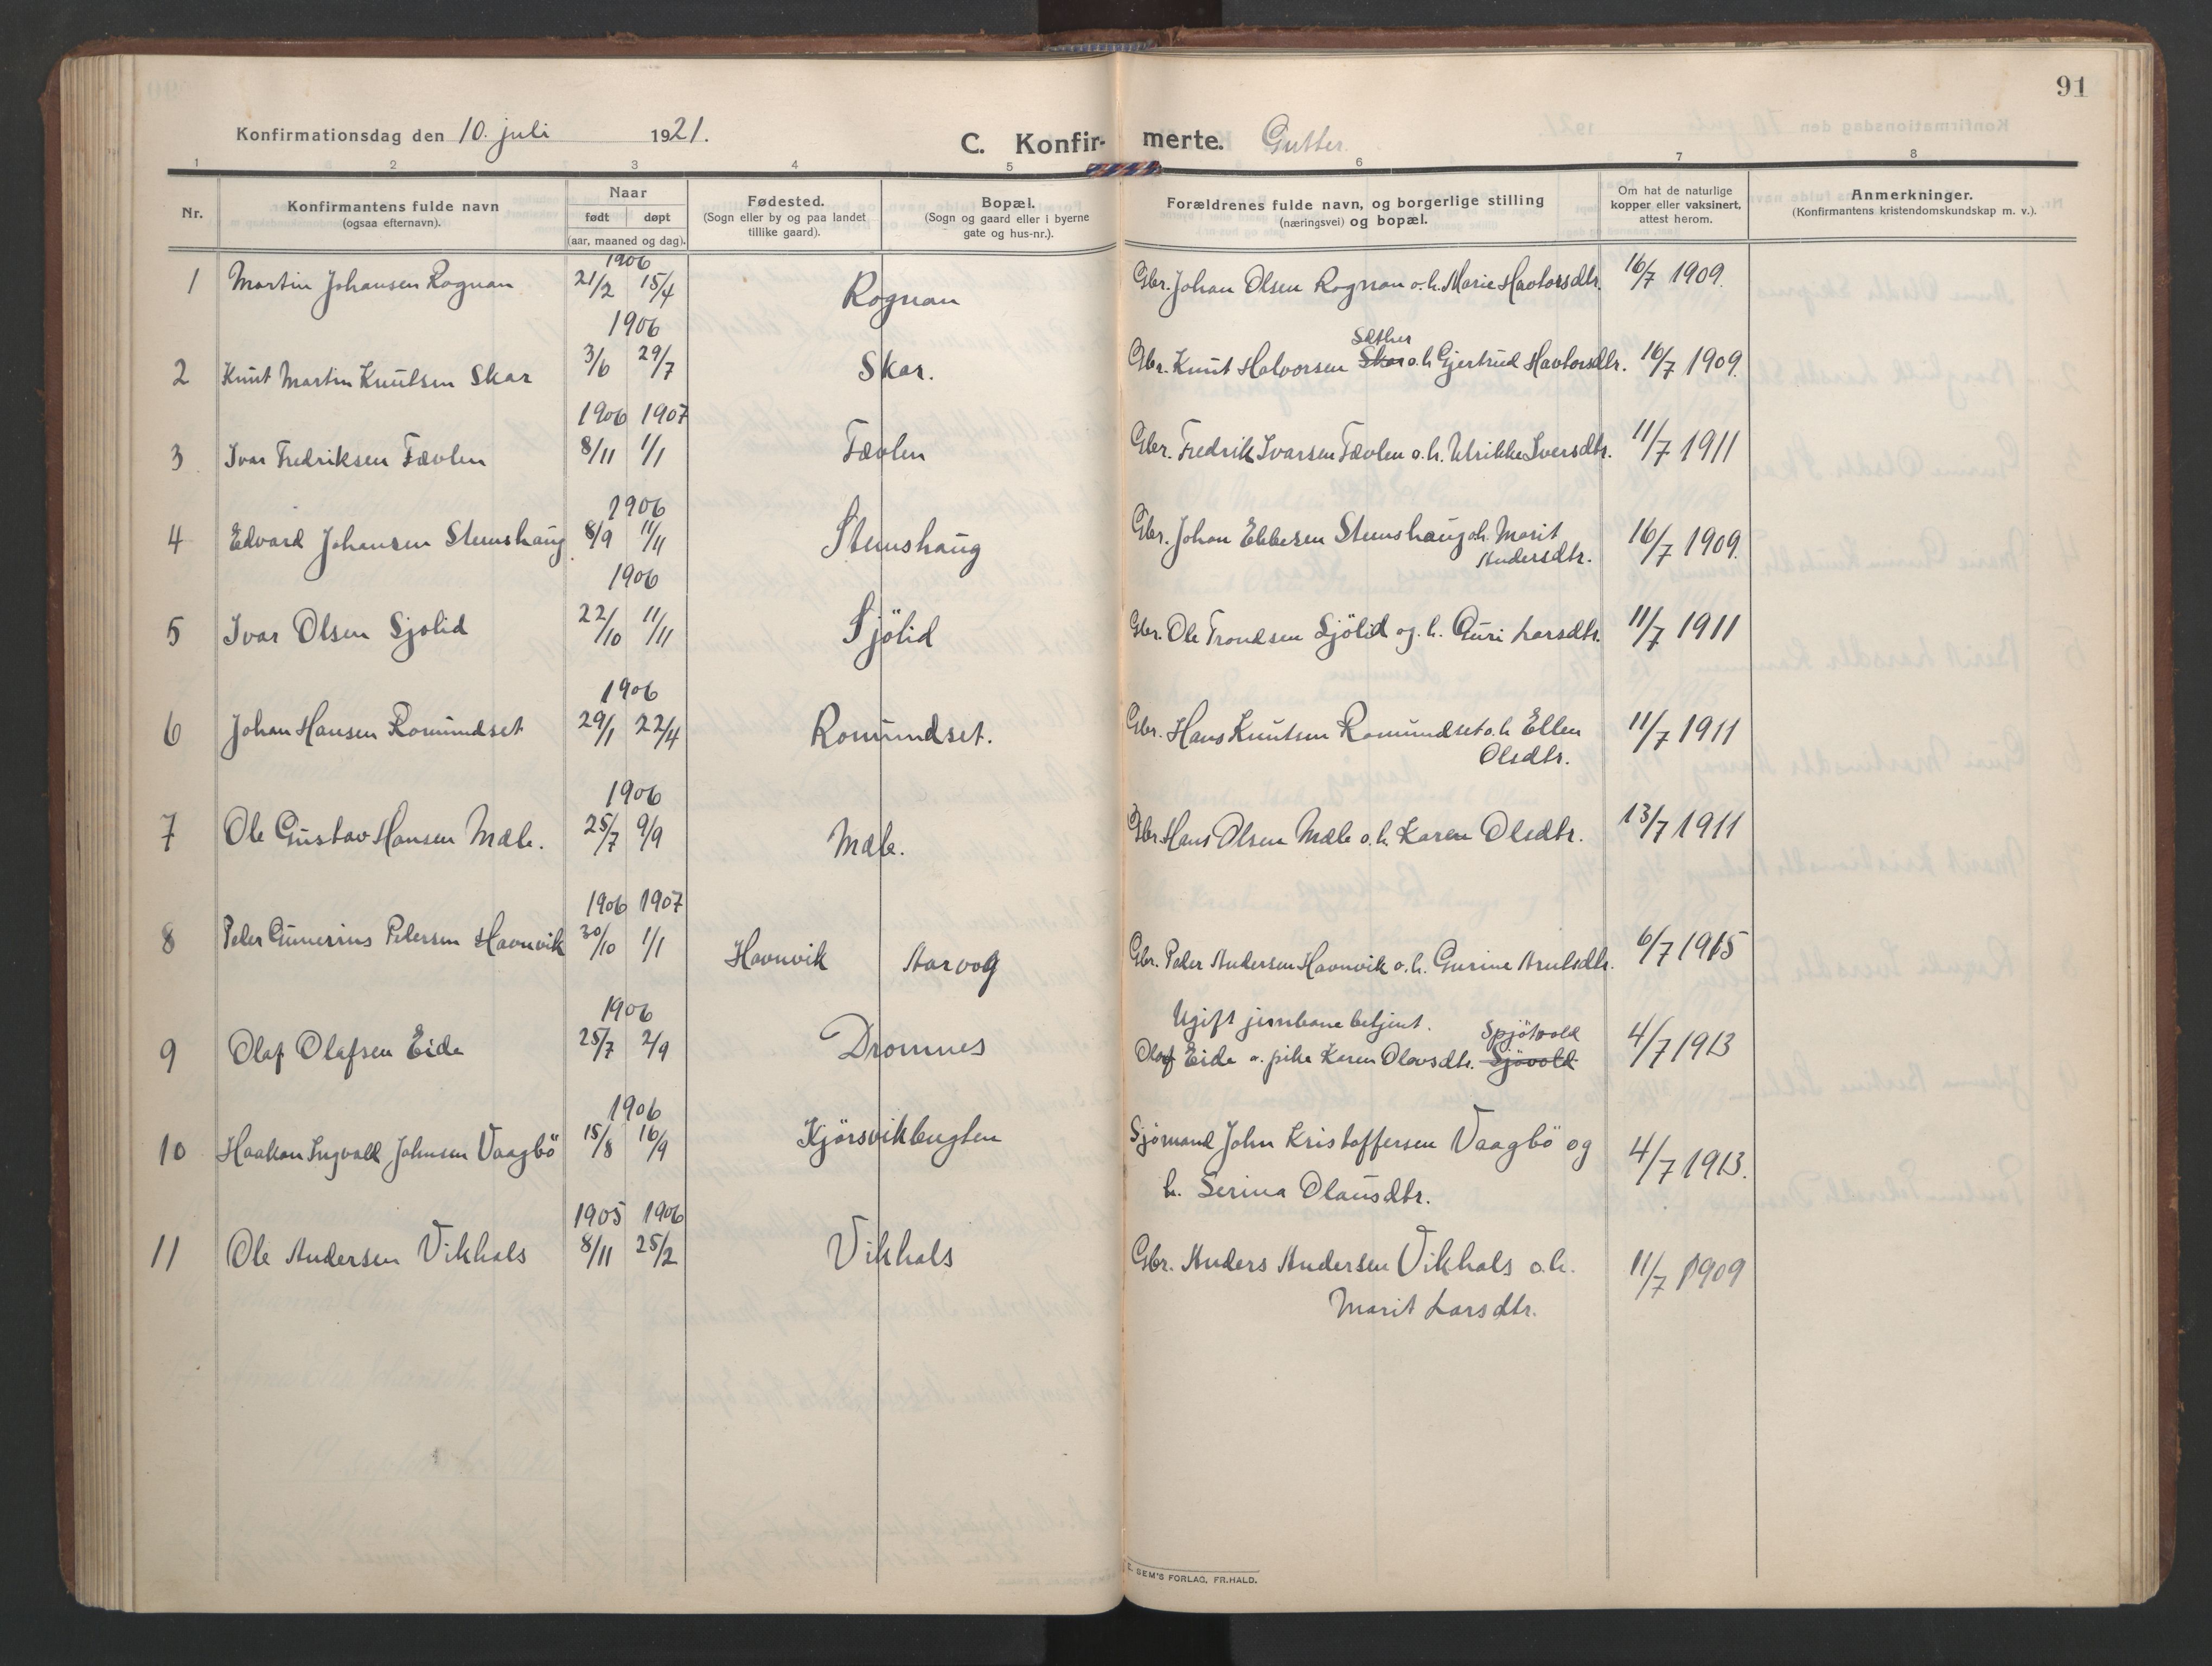 91
Konfirmationsdag den 10. juli 1921.
C. Konfir- merte. Gutter.
1 2 3 4 5 6 7 8
Nr.
Konfirmantens fulde navn
(ogsaa efternavn).
Naar
født døpt
(aar, maaned og dag).
Fødested.
(Sogn eller by og paa landet
tillike gaard).
Bopæl.
(Sogn og gaard eller i byerne
gate og hus-nr.).
Forældrenes fulde navn, og borgerlige stilling
(næringsvei) og bopæl.
Om hat de naturlige
kopper eller vaksinert,
attest herom.
Anmerkninger.
(Konfirmantens kristendomskundskap m. v.).
1906
1 Martin Johansen Rognan 21/2 15/4 Rognan Gbr. Johan Olsen Rognan o.h. Marie Havtorsdtr. 16/7 1909.
1906 Sæther
2 Knut Martin Knutsen Skar 3/6 29/7 Skar. Gbr. Knut Halvorsen Skar o.h. Gjertrud Havtorsdtr. 16/7 1909.
1906 1907
3 Ivar Fredriksen Tævlen 8/11 1/1 Tævlen Gbr. Fredrik Ivarsen Tævlen o.h. Ulrikke Iversdtr. 11/7 1911
1906
4 Edvard Johansen Stemshaug 8/9 11/11 Stemshaug Gbr. Johan Ebbesen Stemshaug o.h. Marit 16/7 1909.
Andersdtr.
1906
5 Ivar Olsen Sjølid 22/10 11/11 Sjölid Gbr. Ole Trondsen Sjölid og h. Guri Larsdtr. 11/7 1911
1906
6 Johan Hansen Romundset 29/1 22/4 Romundset. Gbr. Hans Knutsen Romundset o.h. Ellen 11/7 1911
Olsdtr.
1906
7 Ole Gustav Hansen Mæle. 25/7 9/9 Mæle. Gbr. Hans Olsen Mæle o.h. Karen Olsdtr. 13/7 1911
1906 1907
8 Peder Gunerius Pedersen Havnvik 30/10 1/1 Havnvik Aarvog Gbr. Peder Andersen Havnvik o.h. Gurine Arntsdtr. 6/7 1915
1906 Ugift jernbane betjent. Spjötvold
9 Olaf Olafsen Eide 25/7 2/9 Dromnes Olaf Eide o. pike Karen Olavsdtr. Sjövold 4/7 1913
1906
10 Haakon Ingvald Johnsen Vaagbö 15/8 16/9 Kjörsvikbugten Sjömand John Kristoffersen Vaagbö og 4/7 1913.
h. Serina Olausdtr.
1905 1906
11 Ole Andersen Vikhals 8/11 25/2 Vikhals Gbr. Anders Andersen Vikhals o.h. 11/7 1909
Marit Larsdtr.
SEM'S FORLAG, FR.HALD.